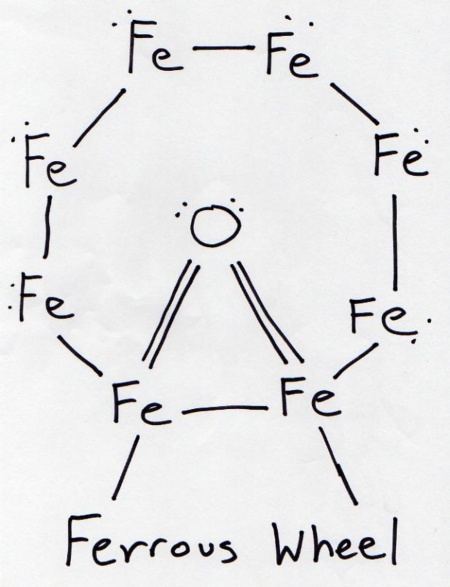 Fe Fe
Fe Fe
O
Fe Fe
Fe Fe
Ferrous Wheel